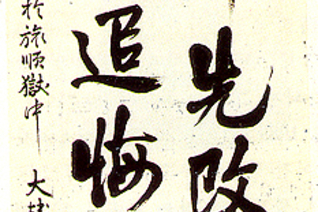 先改
追悔
於旅順獄中 大